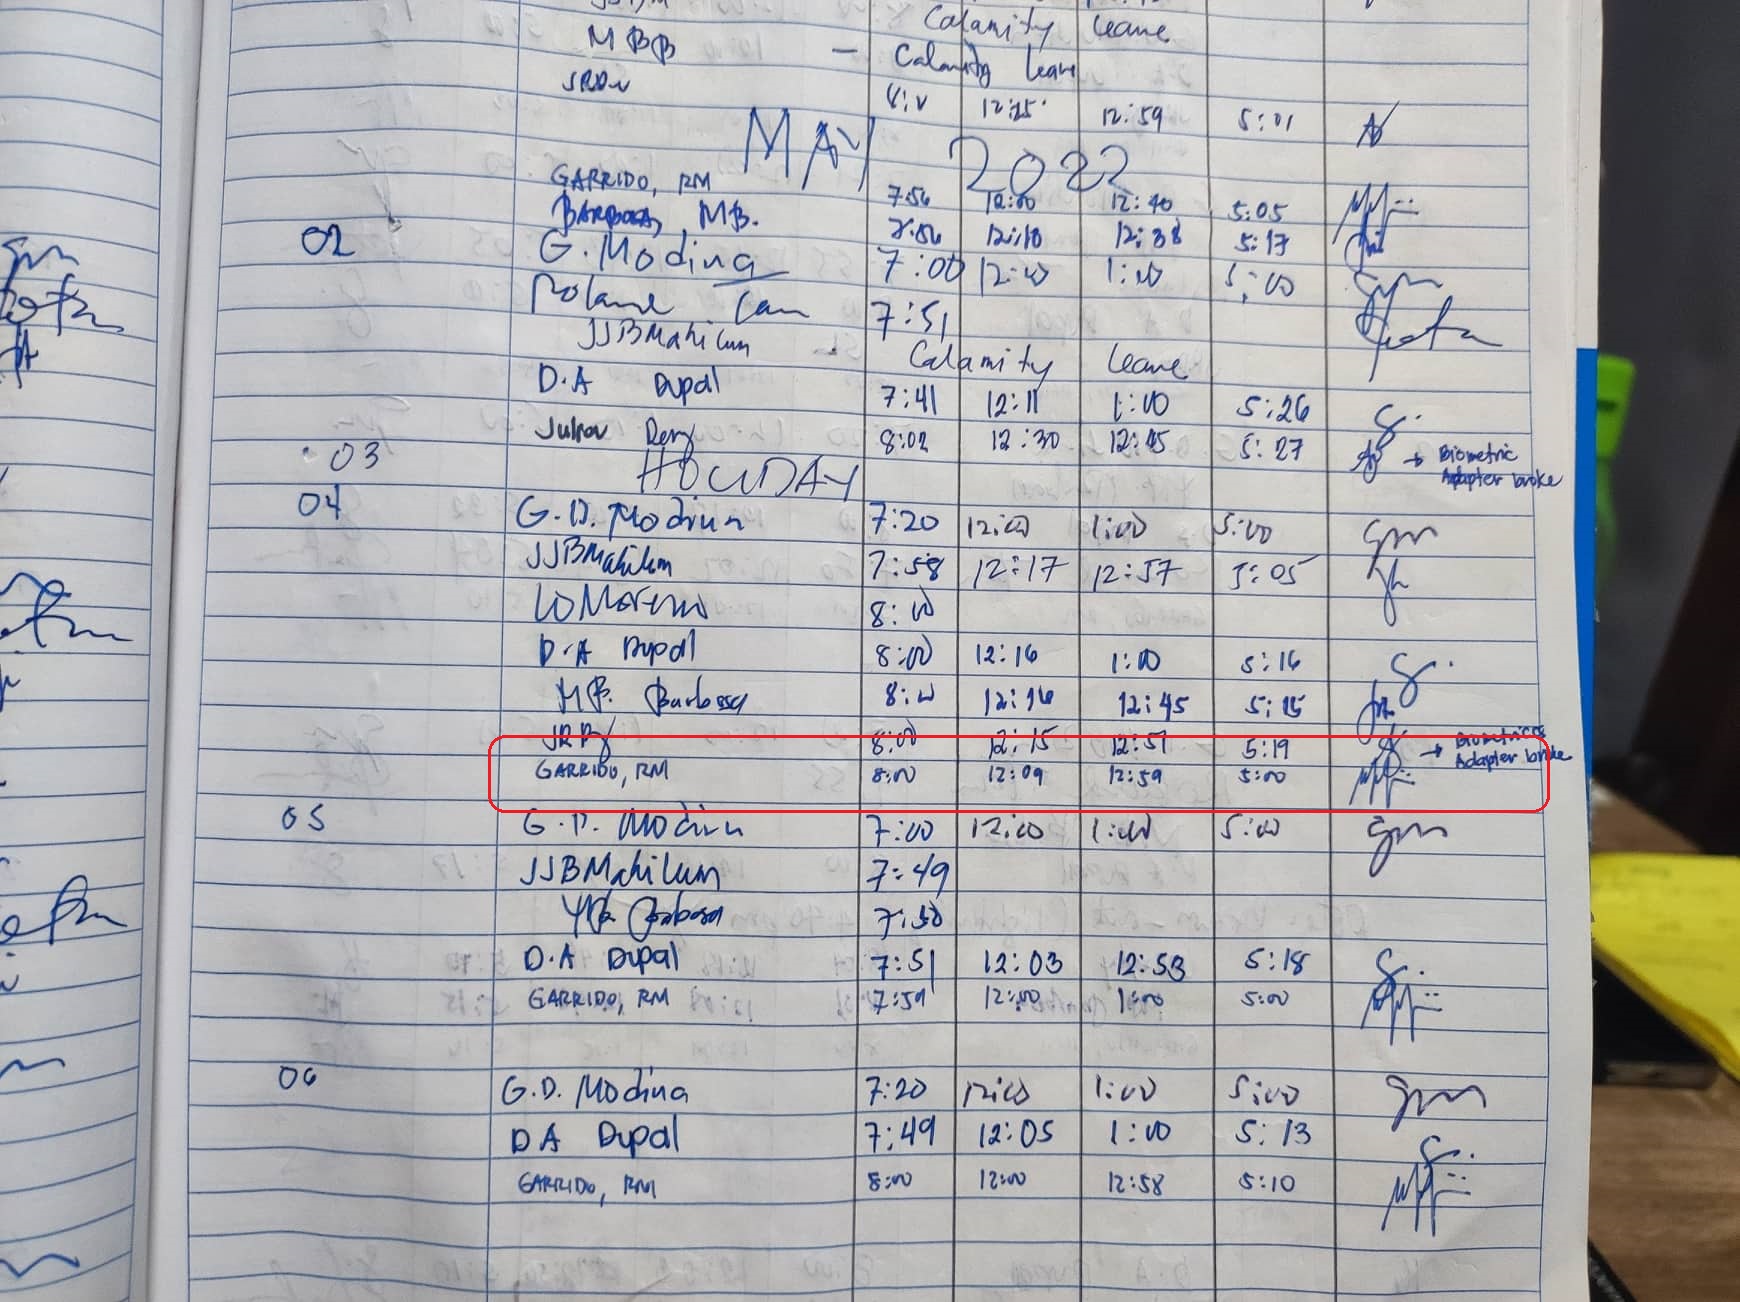 Calamity leave
MBB — Calamity leave
12:25 12:59 5:01
MAY 2022
GARRIDO, RM 7:56 12:00 12:40 5:05
BARBOSA, MB. 7:56 12:10 12:38 5:17
02 G. Modina 7:00 12:00 1:00 5:00
7:51
JJBMahilum Calamity leave
D.A Dupal 7:41 12:11 1:00 5:26
8:02 12:30 12:45 5:27 → Biometric
Adapter broke
03 HOLIDAY
04 G.D. Modina 7:20 12:00 1:00 5:00 gm
JJBMahilum 7:58 12:17 12:57 5:05
LO Moreno 8:00
D.A Dupal 8:00 12:16 1:00 5:16
MB. Barbosa 8:00 12:16 12:45 5:15
8:00 12:15 12:51 5:19 → Biometrics
Adapter broke
GARRIDO, RM 8:00 12:09 12:59 5:00
05 G.D. Modina 7:00 12:00 1:00 5:00 gm
JJBMahilum 7:49
Barbosa 7:50
D.A Dupal 7:51 12:03 12:53 5:18
GARRIDO, RM 7:59 12:00 1:00 5:00
06 G.D. Modina 7:20 12:00 1:00 5:00 gm
DA Dupal 7:49 12:05 1:00 5:13
GARRIDO, RM 8:00 12:00 12:58 5:10